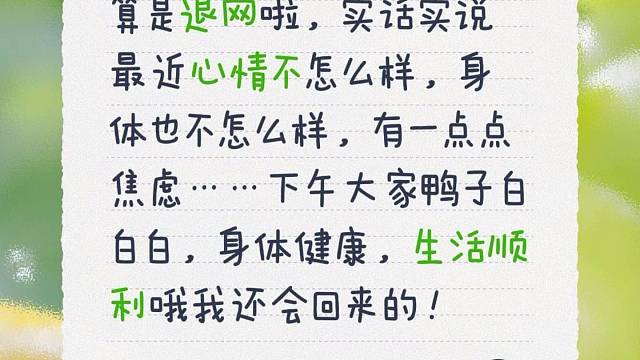 算是退网啦，实话实说
最近心情不怎么样，身
体也不怎么样，有一点点
焦虑……下午大家鸭子白
白白，身体健康，生活顺
利哦我还会回来的！